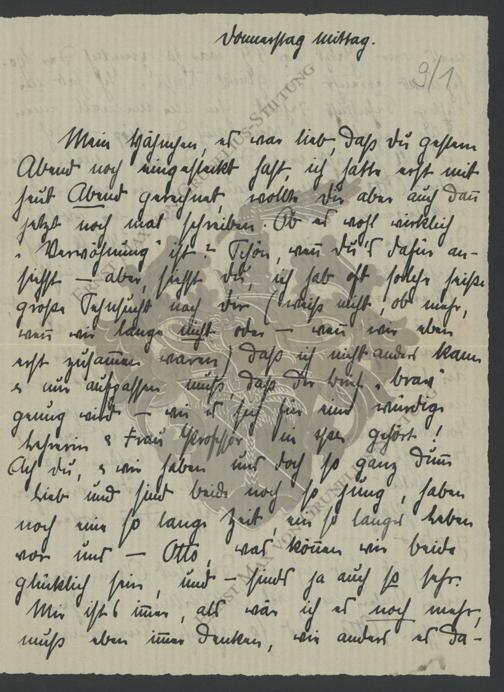 Donnerstag Mittag.
9/1
Mein Hähnchen, es war lieb, daß du gestern
Abend noch eingesteckt hast, ich hatte erst mit
heut Abend gerechnet, wollte dir aber auch dann
jetzt noch mal schreiben. Ob es wohl wirklich
"Verwöhnung" ist? Schön, wenn du's dafür an-
siehst — aber, siehst du, ich hab oft solche heiße
große Sehnsucht nach dir (weiß nicht, ob mehr,
wenn wir lange nicht oder — wenn wir eben
erst zusammen waren) daß ich nicht anders kann
& nur aufpassen muß, daß der Brief "brav"
genug wird — wie es sich für eine würdige
Lehrerin & Frau Professor in gehört!
Ach du, & wir haben uns doch so ganz dumm
lieb und sind beide noch so jung, haben
noch eine so lange Zeit, ein so langes Leben
vor uns — Otto, was können wir beide
glücklich sein, und — sinds ja auch so sehr.
Mir ist's immer, als wär ich es noch mehr,
muß eben immer denken, wie anders es da-